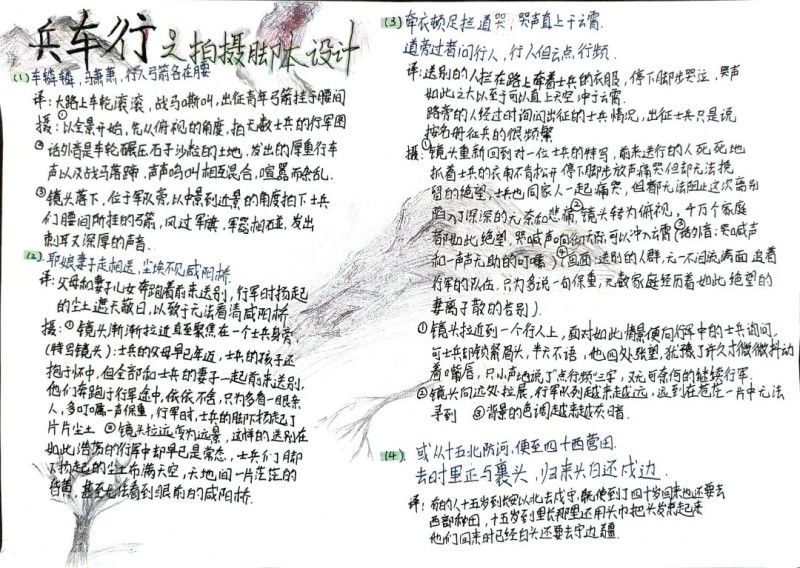 兵车行之拍摄脚本设计
(1)车辚辚,马萧萧,行人弓箭各在腰
译:大路上车轮滚滚,战马嘶叫,出征青年弓箭挂于腰间
摄:①以全景开始,先从俯视的角度,拍无数士兵的行军图
②话外音是车轮碾压石子沙砾的土地,发出的厚重行车
声以及战马落蹄,声声鸣叫相互混合,喧嚣而杂乱.
③镜头落下,位于军队旁,以中景到近景的角度拍下士兵
们腰间所挂的弓箭,风过军旗,军器相碰,发出
刺耳又深厚的声音.
(2)耶娘妻子走相送,尘埃不见咸阳桥.
译:父母和妻子儿女奔跑着前来送别,行军时扬起
的尘土遮天蔽日,以致于无法看清咸阳桥.
摄:①镜头渐渐拉近直至聚焦在一个士兵身旁,
(特写镜头):士兵的父母早已年迈,士兵的孩子还
抱于怀中,但全部和士兵的妻子一起前来送别,
他们奔跑于行军途中,依依不舍,只为多看一眼亲
人,多叮嘱一声保重,行军时,士兵的脚下扬起了
片片尘土 ②镜头拉远变为远景,这样的送别在
如此浩荡的行军中却早已是常态,士兵们脚
下扬起的尘土布满天空,天地间一片茫茫的
昏黄,甚至无法看到眼前的咸阳桥.
(3)牵衣顿足拦道哭,哭声直上干云霄.
道旁过者问行人,行人但云点行频.
译:送别的人拦在路上牵着士兵的衣服,停下脚步哭泣,哭声
如此之大以至于可以直上天空冲于云霄.
路旁的人经过时询问出征的士兵情况,出征士兵只是说
按名册征兵的很频繁
摄:①镜头重新回到对一位士兵的特写,前来送行的人死死地
抓着士兵的衣角不肯松开,停下脚步放声痛哭但却无法挽
留的绝望,士兵也同家人一起痛哭,但都无法阻止这次离别
陷入了深深的无奈和悲痛,②镜头转为俯视,千万个家庭
都如此绝望,哭喊声响彻天际可以冲入云霄③(话外音:哭喊声
和一声声无助的叮嘱)④(画面:送别的人群,无一不泪流满面追着
行军的队伍,只为多说一句保重,无数家庭经历着如此绝望的
妻离子散的告别).
①镜头拉近到一个行人上,面对如此情景便向行军中的士兵询问,
可士兵却锁紧眉头,半天不语,他四处张望,犹豫了许久才微微抖动
着嘴唇,只小声地说了"点行频"三字,又无可奈何的继续行军.
②镜头向远处拉展,行军队列越来越远,远到在苍茫一片中无法
寻到 ③背景的色调越来越灰白着
(4).或从十五北防河,便至四十西营田.
去时里正与裹头,归来头白还戍边.
译:有的人十五岁到以北去戍守,就使到了四十岁回来也还要去
西部种田,十五岁到里长那里还用头巾把头发裹起来
他们回来时已经白头还要去守边疆.